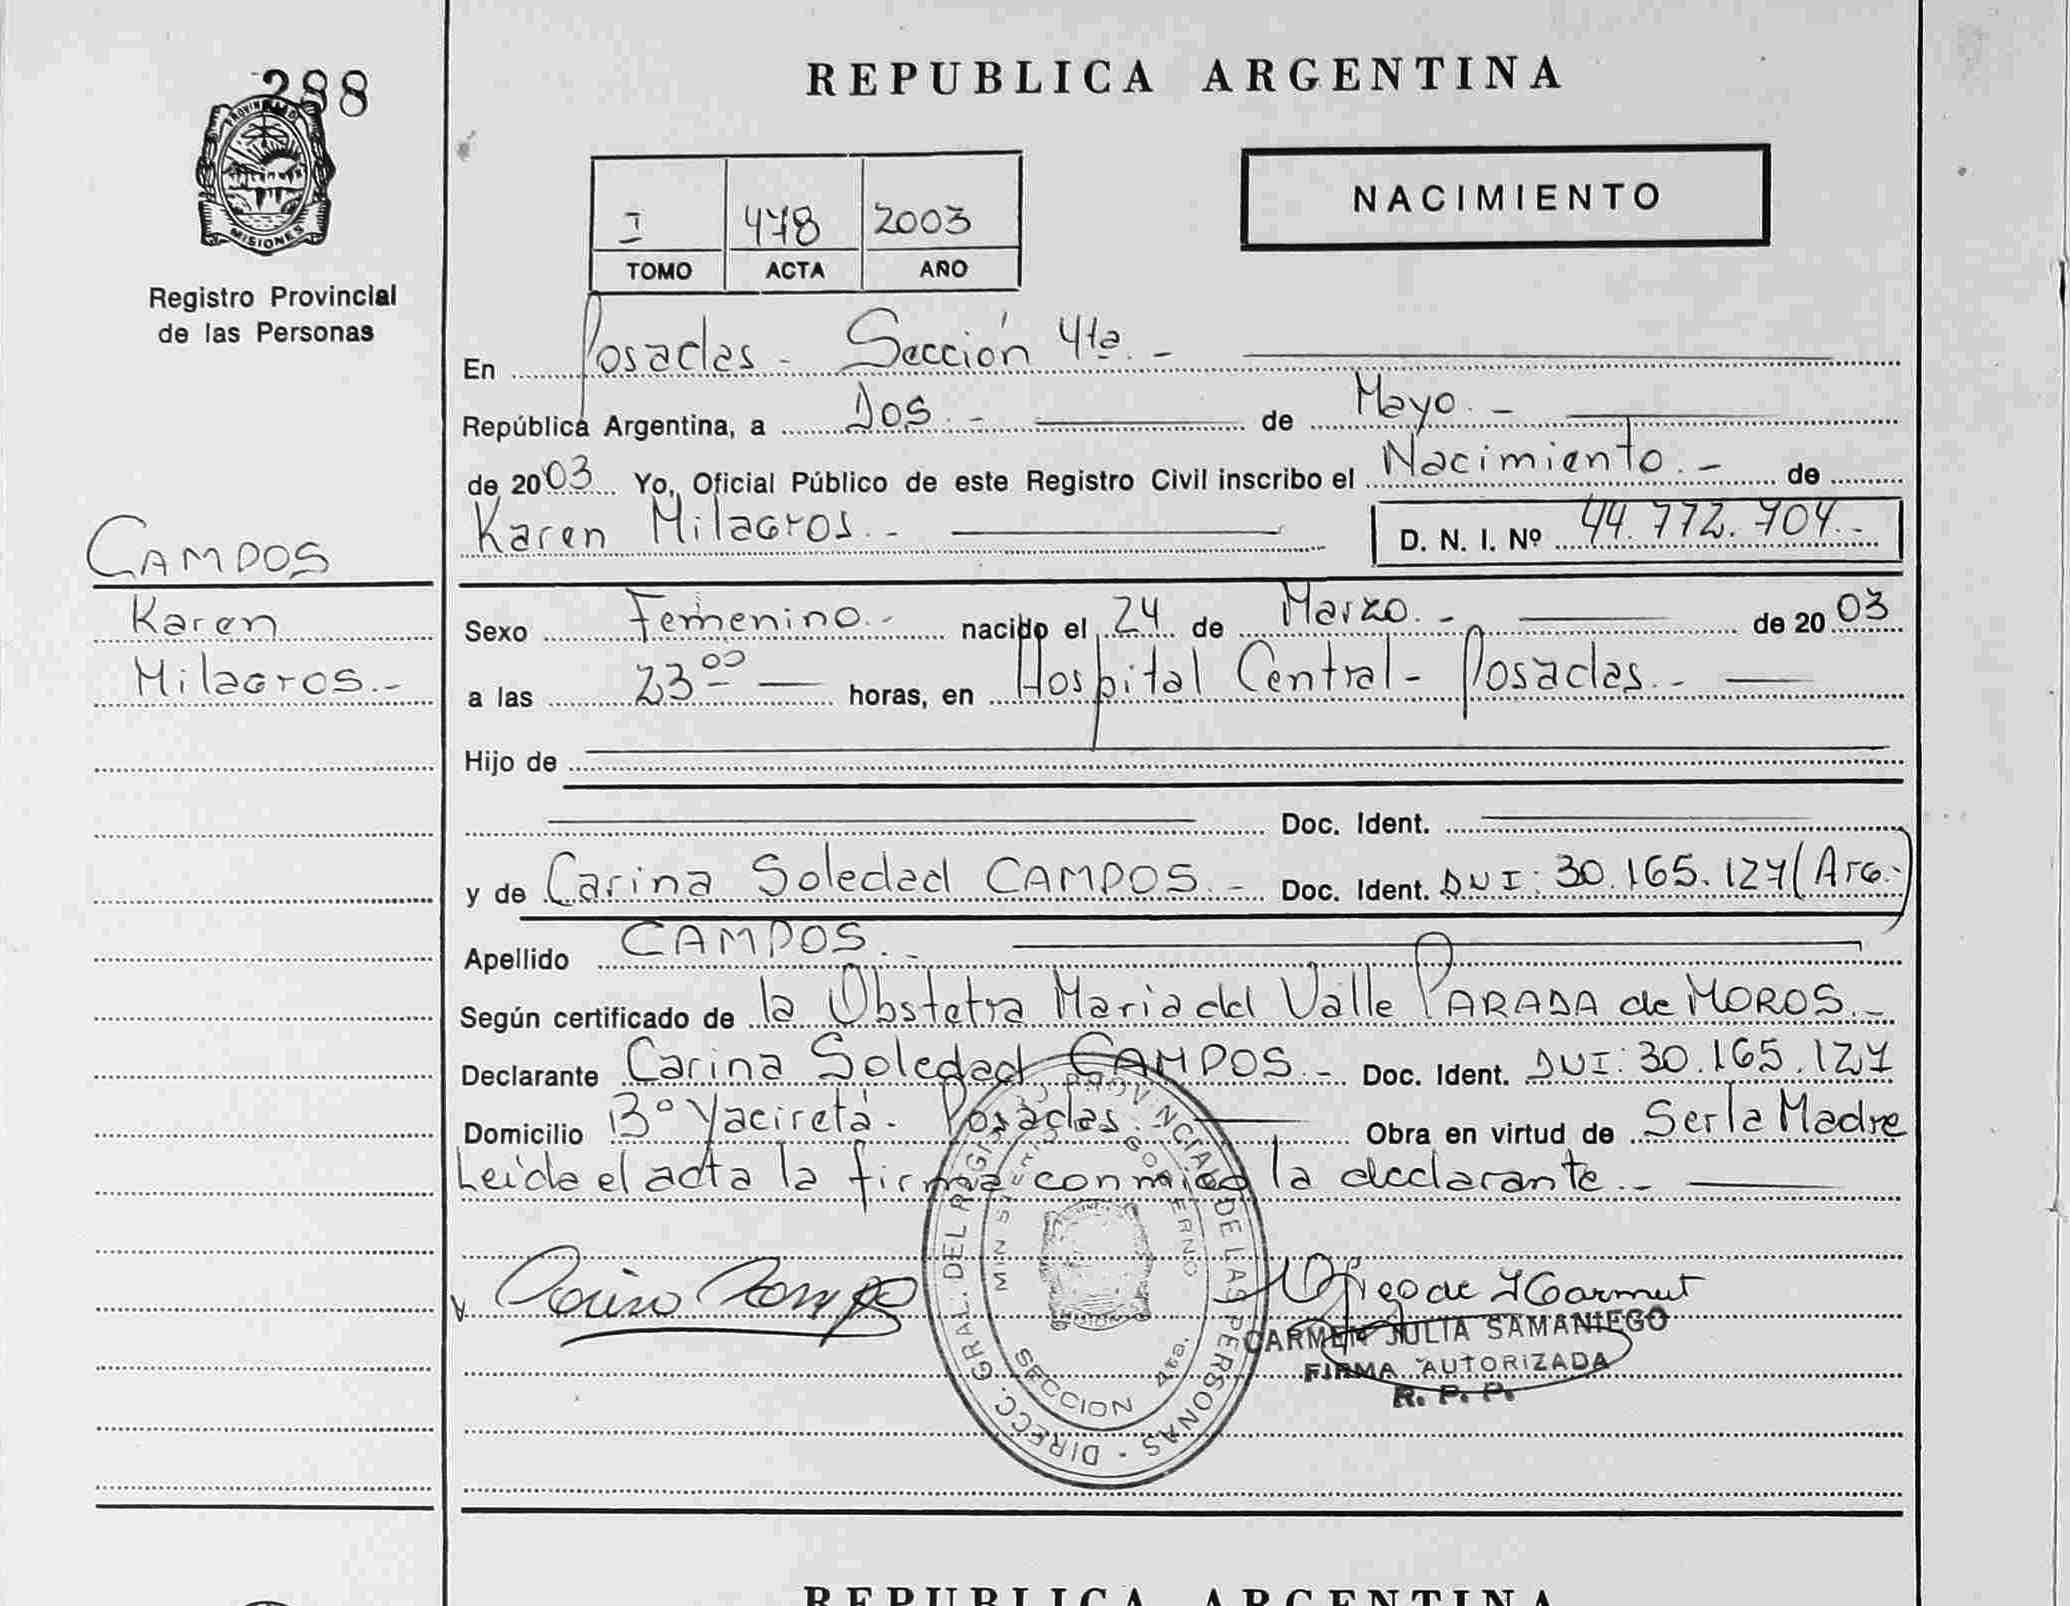 288
PROVINCIA DE
MISIONES
Registro Provincial
de las Personas
CAMPOS
Karen
Milagros.-
REPUBLICA ARGENTINA
I 478 2003
TOMO ACTA AÑO
NACIMIENTO
En Posadas - Sección 4ta. -
República Argentina, a Dos. - de Mayo. -
de 2003 Yo, Oficial Público de este Registro Civil inscribo el Nacimiento. - de
Karen Milagros. - D. N. I. Nº 44.772.704.-
Sexo Femenino.- nacido el 24 de Marzo. - de 2003
a las 23 00 horas, en Hospital Central - Posadas. -
Hijo de
Doc. Ident.
y de Carina Soledad CAMPOS. - Doc. Ident. DNI: 30.165.127 (Arg.-)
Apellido CAMPOS. -
Según certificado de la Obstetra Maria del Valle PARADA de MOROS. -
Declarante Carina Soledad CAMPOS. - Doc. Ident. DNI: 30.165.127
Domicilio Bº Yacireta - Posadas. Obra en virtud de Ser la Madre
Leida el acta la firma conmigo la declarante. -
DIRECC. GRAL. DEL REGISTRO PROVINCIAL DE LAS PERSONAS -
MINISTERIO GOBIERNO
SECCION 4ta.
CARMEN JULIA SAMANIEGO
FIRMA AUTORIZADA
R. P. P.
REPUBLICA ARGENTINA